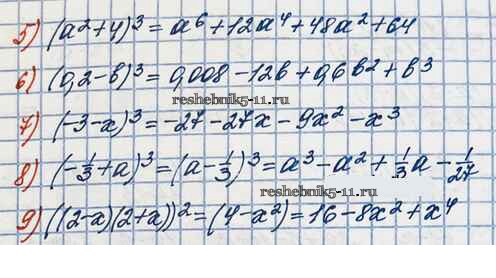 5) (a²+4)³ = a⁶+12a⁴+48a²+64
6) (0,2-b)³ = 0,008-12b+0,6b²+b³
reshebnik5-11.ru
7) (-3-x)³ = -27-27x-9x²-x³
8) (-1/3+a)³ = (a-1/3)³ = a³-a²+1/3a-1/27
reshebnik5-11.ru
9) ((2-x)(2+x))² = (4-x²) = 16-8x²+x⁴